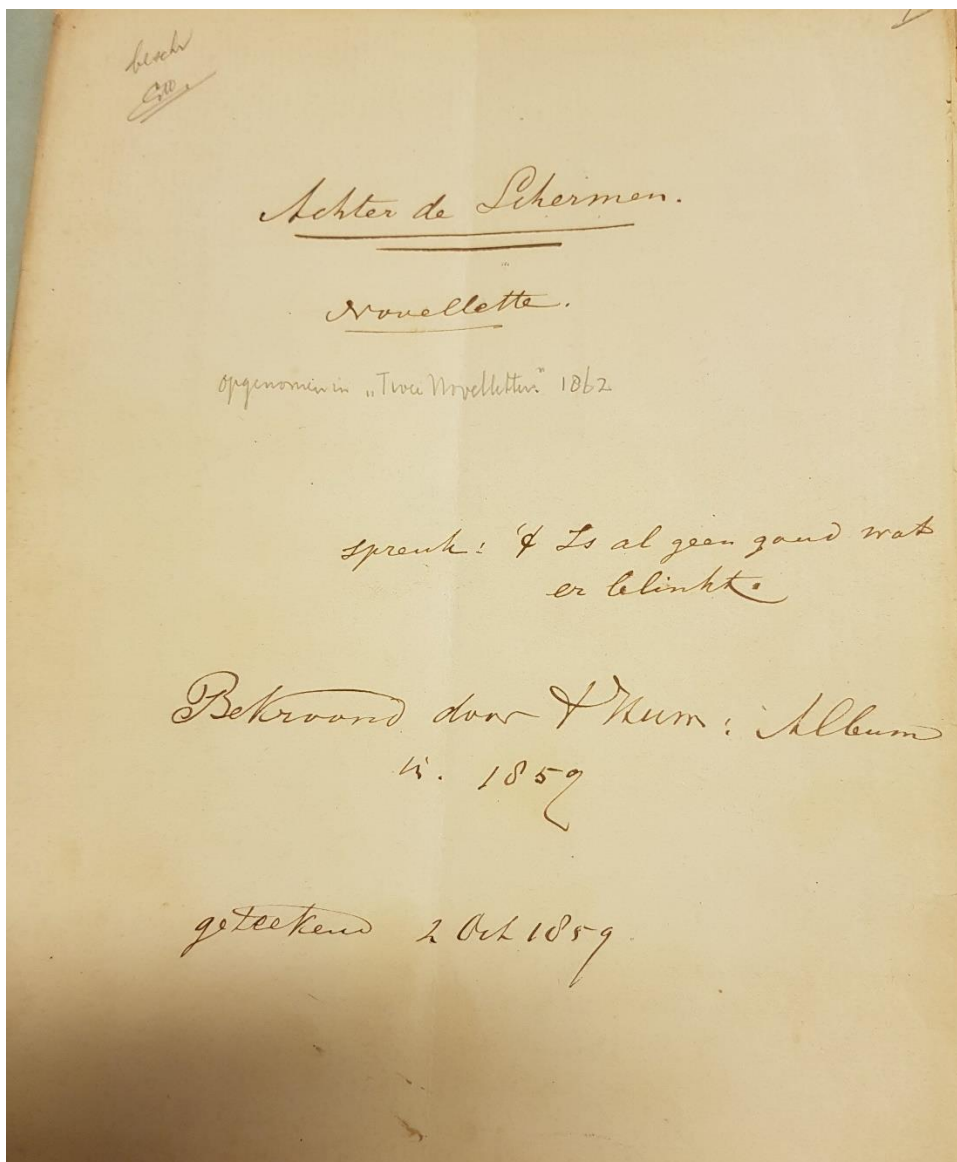 beschr
Achter de Schermen.
Novellette.
opgenomen in „Twee Novelletten" 1862
spreuk: 't Is al geen goud wat
er blinkt.
Bekroond door 't Hum: Album
in. 1859
geteekend 2 Oct 1859.